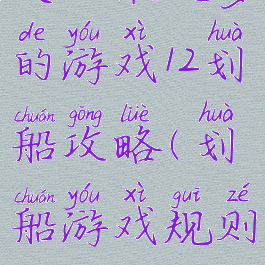 de yóu xì huà
的游戏12划
chuán gōng lüè huà
船攻略(划
chuán yóu xì guī zé
船游戏规则